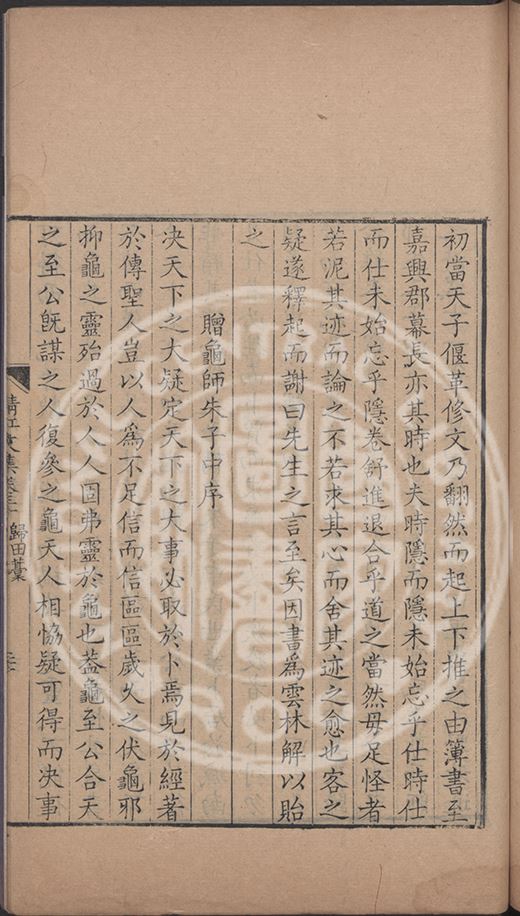 初當天子偃革修文乃翻然而起上下推之由簿書至
嘉興郡幕長亦其時也夫時隱而隱未始忘乎仕時仕
而仕未始忘乎隱卷舒進退合乎道之當然毋足怪者
若泥其迹而論之不若求其心而舍其迹之愈也客之
疑遂釋起而謝曰先生之言至矣因書爲雲林解以貽
之
贈龜師朱子中序
决天下之大疑定天下之大事必取於卜焉見於經著
於傳聖人豈以人爲不足信而信區區歲久之伏龜邪
抑龜之靈殆過於人人固弗靈於龜也葢龜至公合天
之至公旣謀之人復參之龜天人相恊疑可得而决事
清江文集卷三十 歸田藁